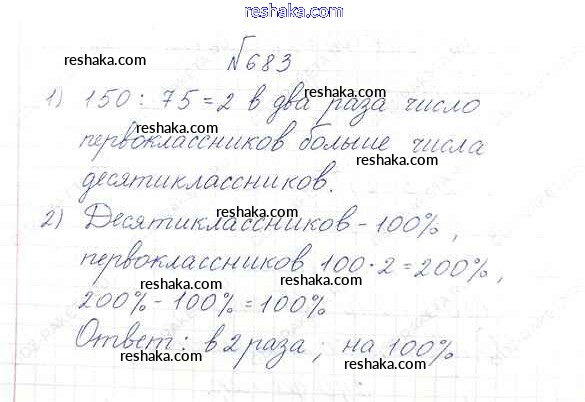 reshaka.com
reshaka.com
№683
reshaka.com
1) 150 : 75 = 2 в два раза число
reshaka.com
первоклассников больше числа
reshaka.com
десятиклассников.
reshaka.com
2) Десятиклассников - 100%,
reshaka.com
первоклассников 100 · 2 = 200%,
reshaka.com
200% - 100% = 100%
reshaka.com
Ответ: в 2 раза; на 100%
reshaka.com
reshaka.com
reshaka.com